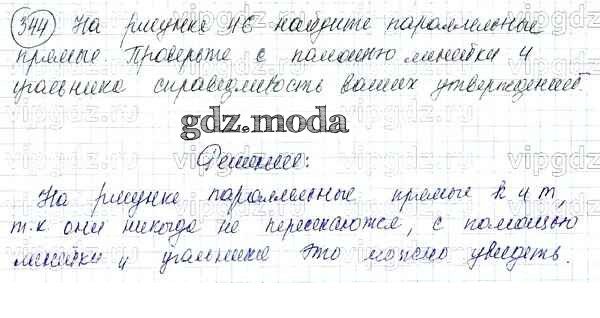 344 На рисунке 46 найдите параллельные
прямые. Проверьте с помощью линейки и
угольника справедливость ваших утверждений.
gdz.moda
Решение:
На рисунке параллельные прямые k и m,
т.к они никогда не пересекаются, с помощью
линейки и угольника это можно увидеть.